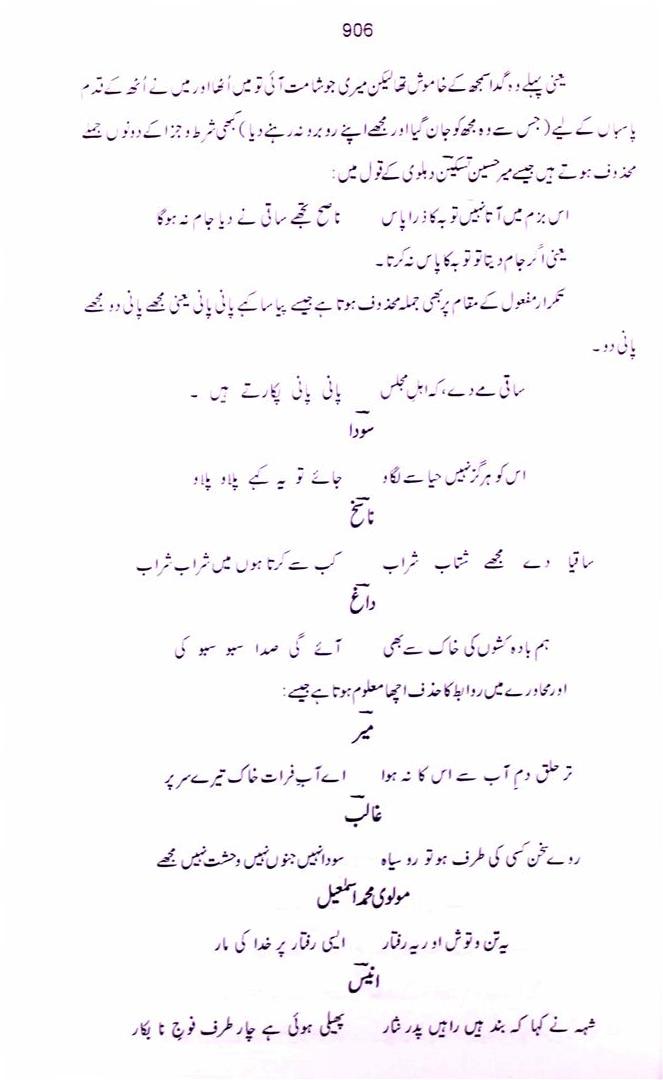 906
یعنی پہلے وہ گدا سمجھ کے خاموش تھا لیکن میری جو شامت آئی تو میں اُٹھا اور میں نے اُٹھ کے قدم
پاسباں کے لیے (جس سے وہ مجھ کو جان گیا اور مجھے اپنے روبرو نہ رہنے دیا) کبھی شرط و جزا کے دونوں جملے
محذوف ہوتے ہیں جیسے میر حسین تسکینؔ دہلوی کے قول میں:
اس بزم میں آتا نہیں توبہ کا ذرا پاس ناصح تجھے ساقی نے دیا جام نہ ہوگا
یعنی اگر جام دیتا تو توبہ کا پاس نہ کرتا۔
تکرار مفعول کے مقام پر بھی جملہ محذوف ہوتا ہے جیسے پیاسا کہے پانی پانی یعنی مجھے پانی دو مجھے
پانی دو۔
ساقی مے دے، کہ اہلِ مجلس پانی پانی پکارتے ہیں ۔
سوداؔ
اس کو ہرگز نہیں حیا سے لگاو جائے تو یہ کہے پلاو پلاو
ناسخؔ
ساقیا دے مجھے شتاب شراب کب سے کرتا ہوں میں شراب شراب
داغؔ
ہم بادہ کشوں کی خاک سے بھی آئے گی صدا سبو سبو کی
اور محاورے میں روابط کا حذف اچھا معلوم ہوتا ہے جیسے:
میرؔ
تر حلق دمِ آب سے اس کا نہ ہوا اے آبِ فرات خاک تیرے سر پر
غالبؔ
روے سخن کسی کی طرف ہو تو رو سیاہ سودا نہیں جنوں نہیں وحشت نہیں مجھے
مولوی محمد اسمٰعیل
یہ تن و توش اور یہ رفتار ایسی رفتار پر خدا کی مار
انیسؔ
شہہ نے کہا کہ بند ہیں راہیں پدر نثار پھیلی ہوئی ہے چار طرف فوجِ نابکار